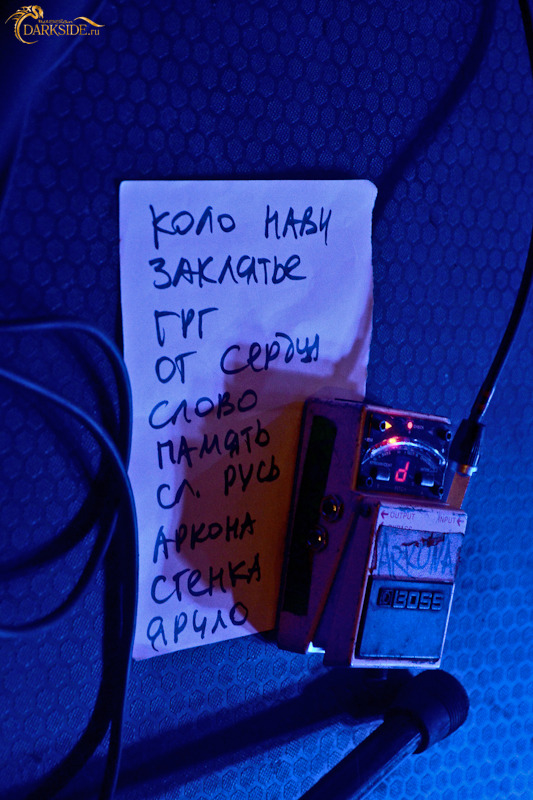 DARKSIDE.ru
КОЛО НАВИ
ЗАКЛЯТЬЕ
ГРГ
ОТ СЕРДЦА
СЛОВО
ПАМЯТЬ
СЛ. РУСЬ
АРКОНА
СТЕНКА
ЯРИЛО
d
OUTPUT INPUT
ARKONA
BOSS